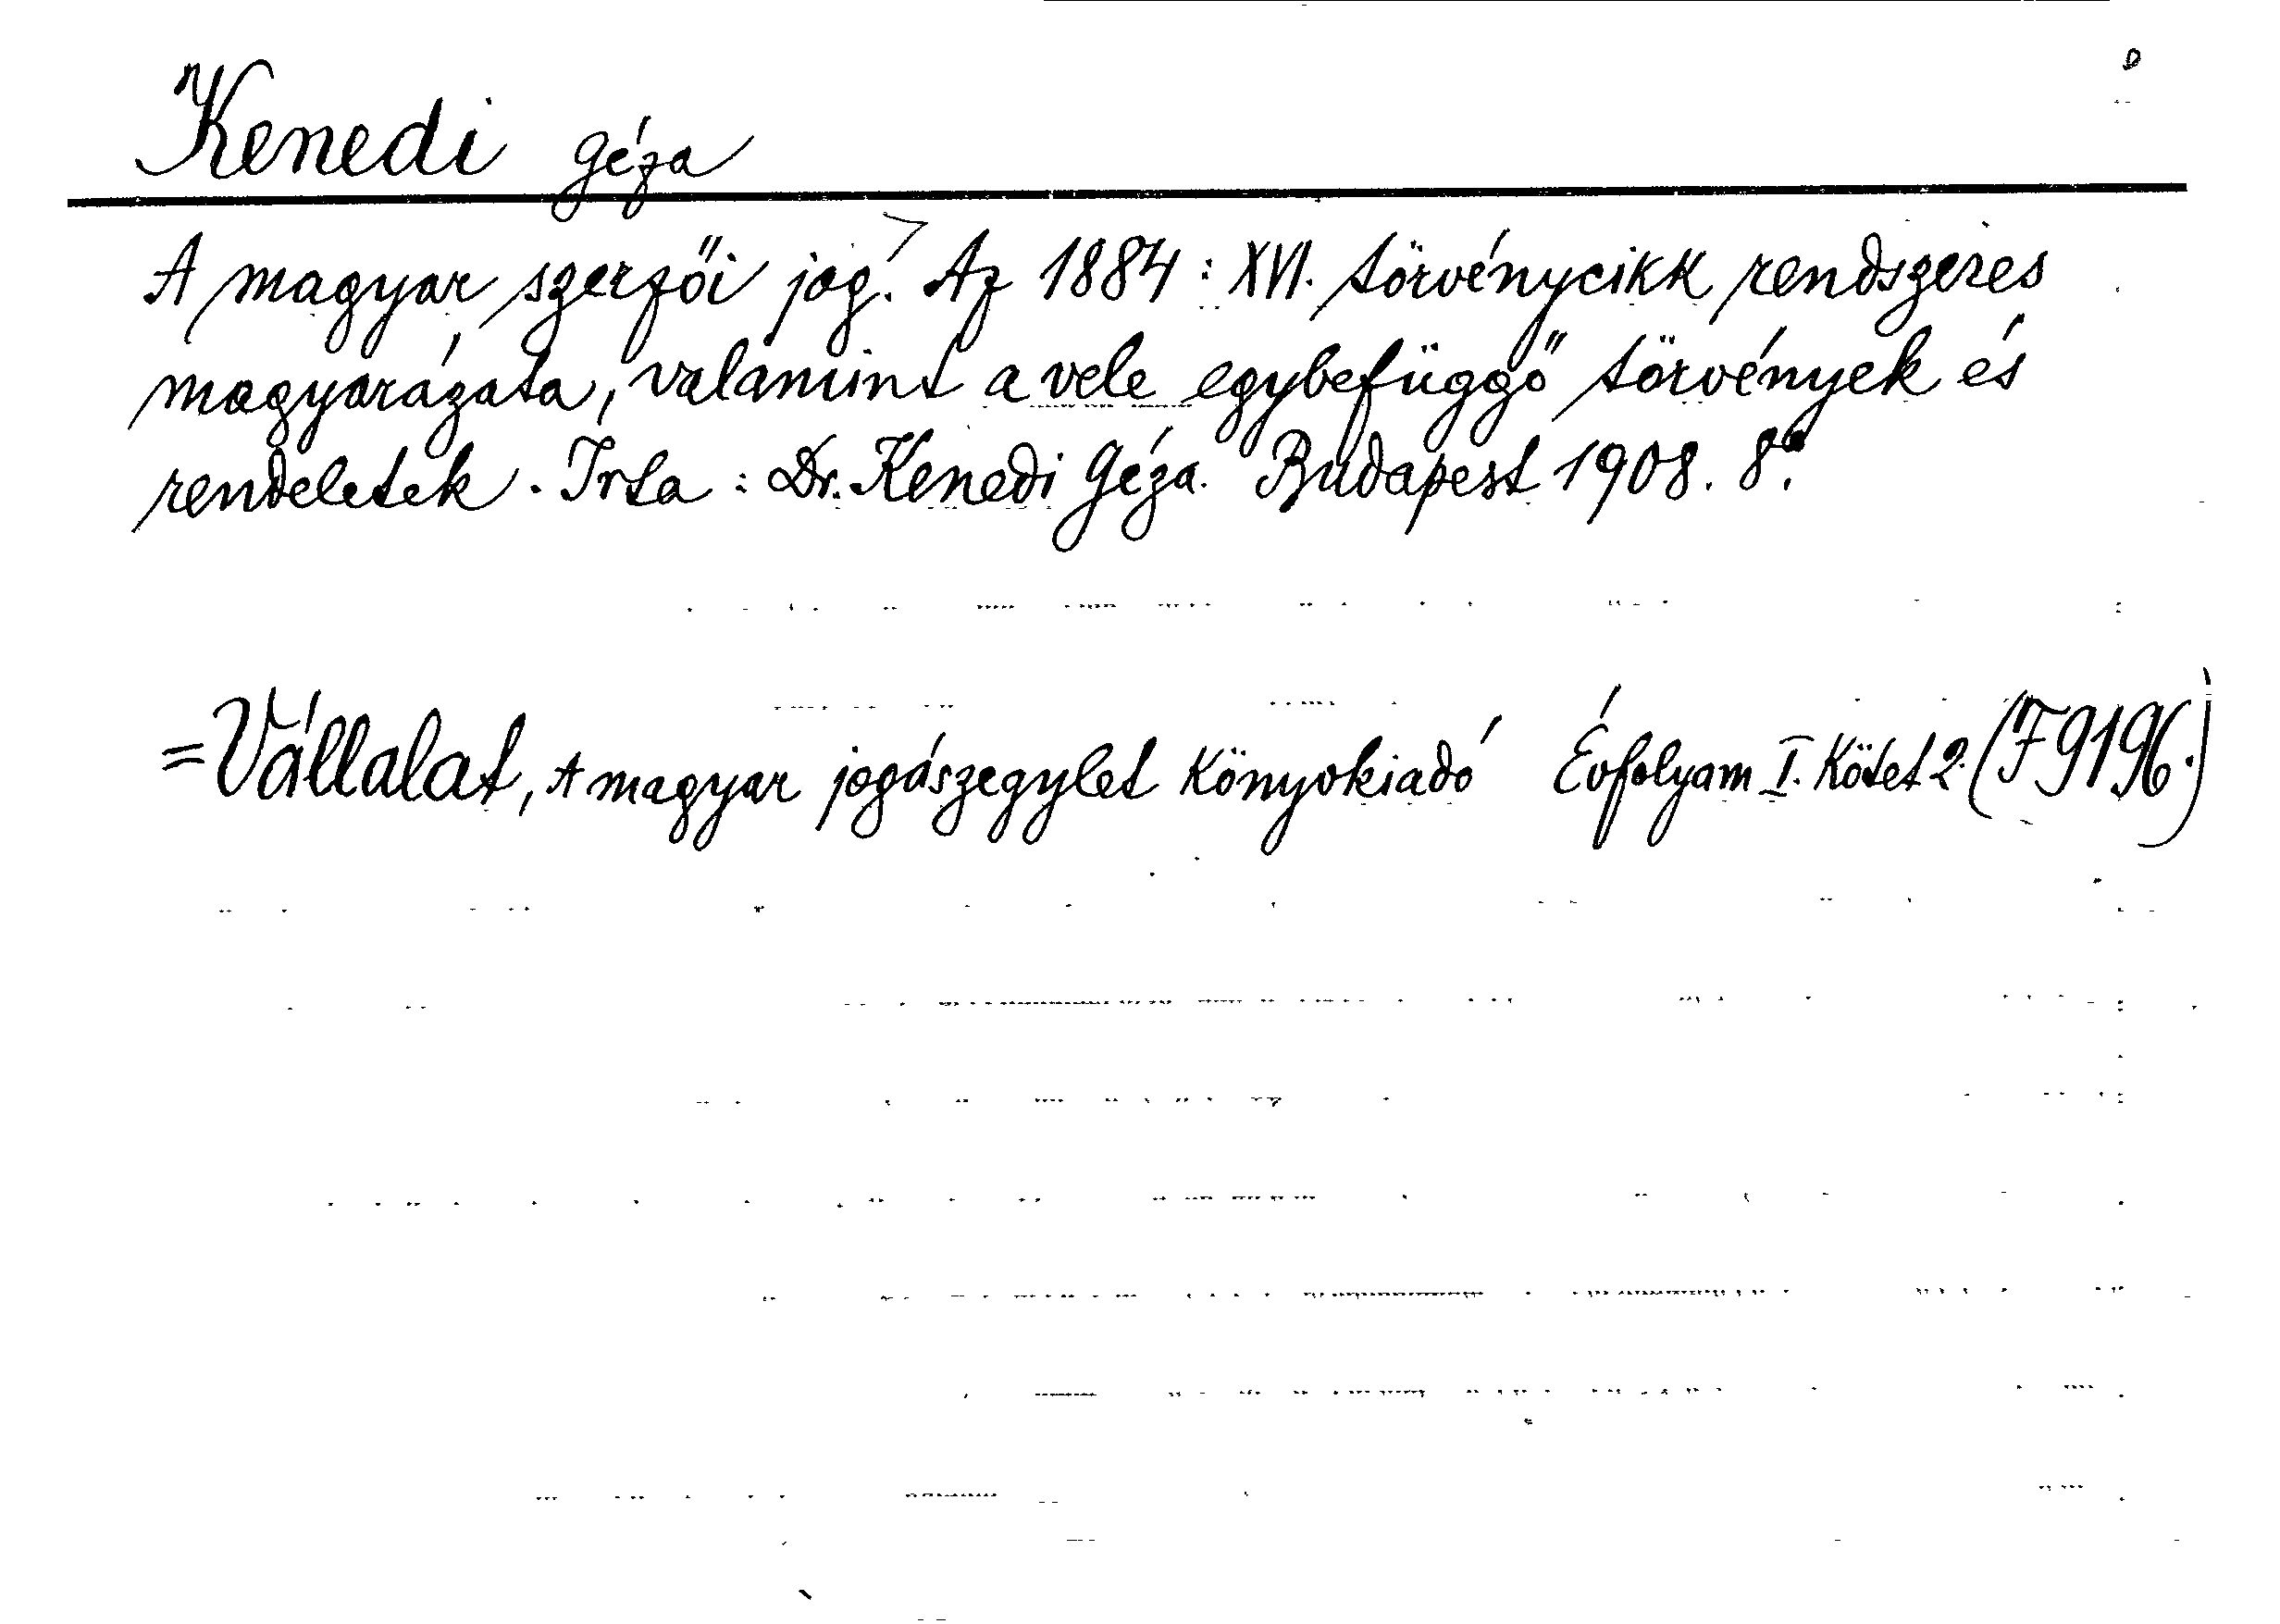 Kenedi Géza
A magyar szerzői jog. Az 1884: XVI. törvénycikk rendszeres
magyarázata, valamint a vele egybefüggő törvények és
rendeletek. Írta: Dr. Kenedi Géza. Budapest 1908. 8°.
=Vállalat, A magyar jogászegylet könyvkiadó Évfolyam I. Kötet 2. (F9196.)